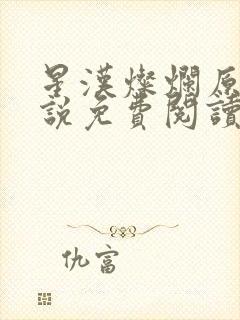 星漢燦爛原
說免費閱讀
仇富